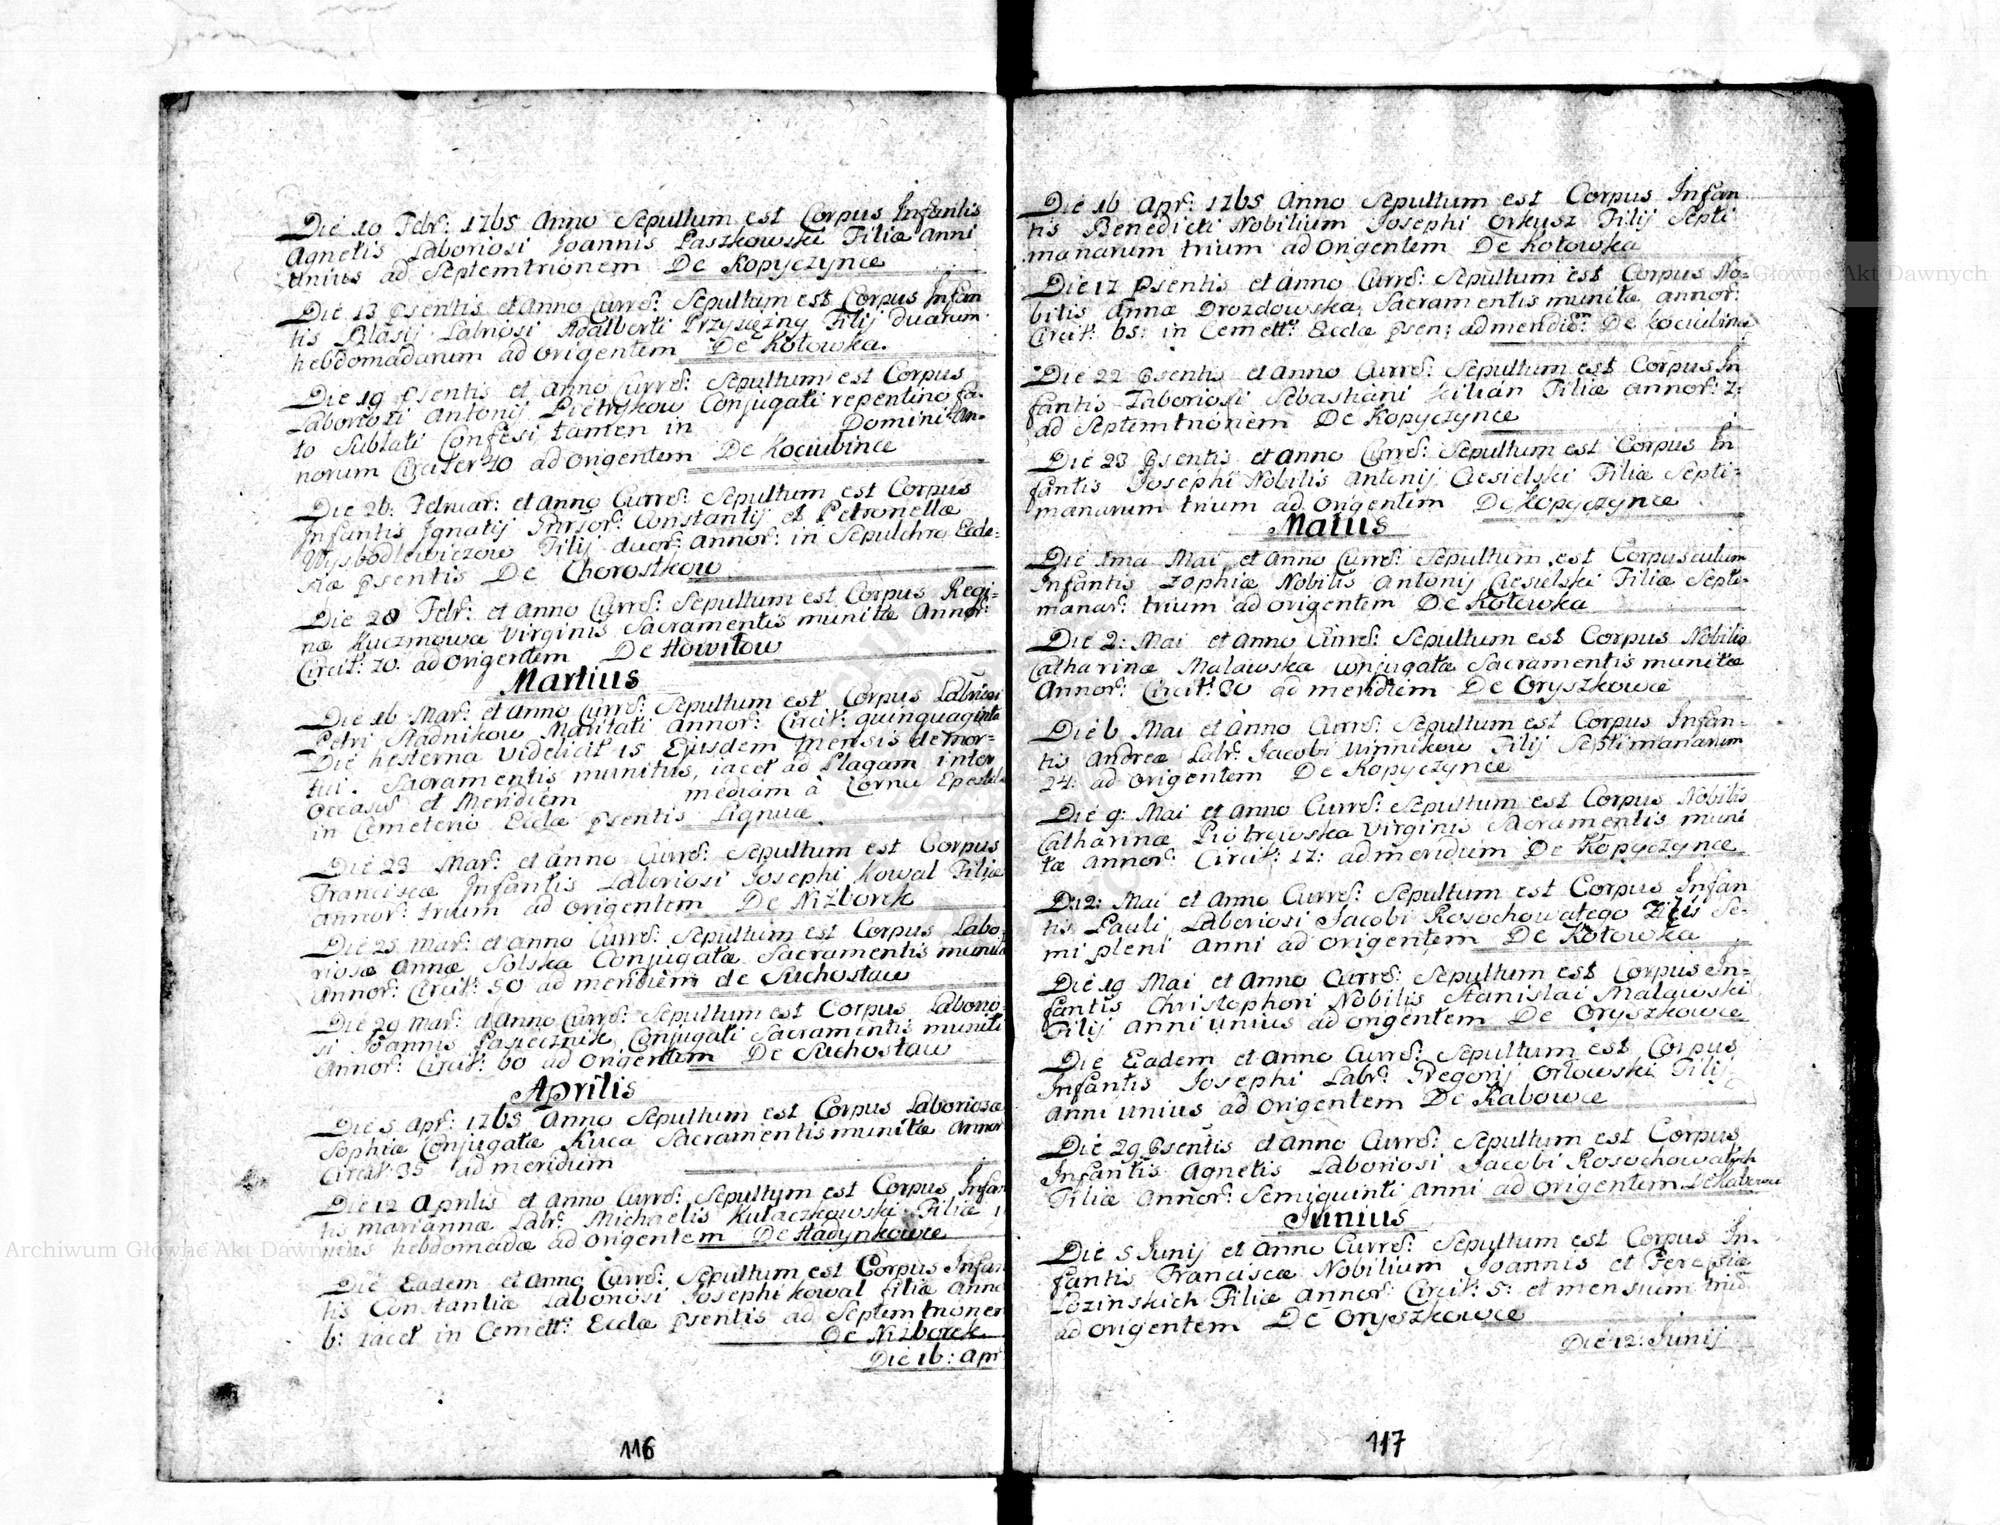 Die 10 Febr: 1765 Anno Sepultum est Corpus Infantis
Agnetis Laboriosi Joannis Paszkowski Filiæ Anni
unius ad Septemtrionem De Kopyczynce
Die 13 Psentis et Anno Curre: Sepultum est Corpus Infan
tis Blasij Labriosi Adalberti Przysężny Filij duarum
hebdomadarum ad Origentem De Kotowka.
Die 19 Psentis et Anno Curre: Sepultum est Corpus
Laboriosi Antonij Pietrykow Conjugati repentino fa-
to Sublati Confesi tamen in Domini An-
norum Circiter 40 ad Origentem De Kociubince
Die 26: Februar: et Anno Curre: Sepultum est Corpus
Infantis Ignatij Constantij et Petronellæ
Filij duor: Annor: in Sepulchro Eccle-
siæ Psentis De Chorostkow
Die 28 Febr: et Anno Curre: Sepultum est Corpus Regi-
næ Kuczmowa Virginis Sacramentis munitæ Annor:
Circit: 20 ad Origentem De Howilow
Martius
Die 16 Mar: et Anno Curre: Sepultum est Corpus Labriosi
Petri Stadnikow Maritati Annor: Circit: quinquaginta
Die hesterna videlicit 15 Ejusdem mensis demor-
tui. Sacramentis munitus, iacet ad Plagam inter
Occasu et Meridiem mediam à Cornu Epestolæ
in Cemeterio Ecclæ Psentis Ligneæ.
Die 23 Mar: et Anno Curre: Sepultum est Corpus
Franciscæ Infantis Laboriosi Josephi Kowal Filiæ
Annor: trium ad Origentem De Nizborek
Die 25 Mar: et Anno Curre: Sepultum est Corpus Labo-
riosæ Annæ Solska Conjugatæ Sacramentis munitæ
Annor: Circit: 50 ad meridiem de Suchostaw
Die 29 Mar: et Anno Curre: Sepultum est Corpus Laborio
si Joannis Pasiecznik Conjugati Sacramentis muniti
Annor: Circit: 60 ad Origentem De Suchostaw
Aprilis
Die 5 Apr: 1765 Anno Sepultum est Corpus Laboriosæ
Sophiæ Conjugatæ Kuca Sacramentis munitæ Annor
Circit: 35 ad meridium
Die 12 Aprilis et Anno Curre: Sepultum est Corpus Infan
tis Mariannæ Labr: Michaelis Kułaczkowski Filiæ
hebdomadæ ad Origentem De Hadynkowce
Die Eadem et Anno Curre: Sepultum est Corpus Infan
tis Constantiæ Laboriosi Josephi Kowal Filiæ Anno
6: iacet in Cemett: Ecclæ Psentis ad Septemtrionem
De Nizborek
Die 16: Apr
116
Die 16 Apr: 1765 Anno Sepultum est Corpus Infan
tis Benedicti Nobilium Josephi Orkusz Filij Septi
manarum trium ad Origentem De Kotowka
Die 17 Psentis et Anno Curre: Sepultum est Corpus No-
bilis Annæ Drozdowska Sacramentis munitæ Annor:
Circit: 65: in Cemett: Ecclæ Psen: ad meridiem De Kociubince
Die 22 Psentis et Anno Curre: Sepultum est Corpus In
fantis Laboriosi Sebastiani Kilian Filiæ Annor: 2:
ad Septemtrionem De Kopyczynce
Die 23 Psentis et Anno Curre: Sepultum est Corpus In
fantis Josephi Nobilis Antonij Ciesielski Filiæ Septi-
manarum trium ad Origentem De Kopyczynce
Maius
Die 1ma Mai et Anno Curre: Sepultum est Corpusculum
Infantis Zophiæ Nobilis Antonij Ciesielski Filiæ Septi-
manar: trium ad Origentem De Kotowka
Die 2: Mai et Anno Curre: Sepultum est Corpus Nobilis
Catharinæ Malawska Conjugatæ Sacramentis munitæ
Annor: Circit: 20 ad meridiem De Oryszkowce
Die 6 Mai et Anno Curre: Sepultum est Corpus Infan-
tis Andreæ Labr: Jacobi Winnikow Filij Septimanarum
24: ad Origentem De Kopyczynce
Die 9: Mai et Anno Curre: Sepultum est Corpus Nobilis
Catharinæ Piotrowska Virginis Sacramentis muni
tæ Annor: Circit: 17: ad meridium De Kopyczynce
D:12: Mai et Anno Curre: Sepultum est Corpus Infan
tis Pauli Laboriosi Jacobi Rosochowatego Filij Se-
mi pleni Anni ad Origentem De Kotowka
Die 19 Mai et Anno Curre: Sepultum est Corpus In-
fantis Christophori Nobilis Stanislai Malawski
Filij Anni unius ad Origentem De Oryszkowce
Die Eadem et Anno Curre: Sepultum est Corpus
Infantis Josephi Labr: Gregorij Orłowski Filij
Anni unius ad Origentem De Rabowce
Die 29 Psentis et Anno Curre: Sepultum est Corpus
Infantis Agnetis Laboriosi Jacobi Rosochowatych
Filiæ Annor: Semiquinti Anni ad Origentem
Junius
Die 5 Junij et Anno Curre: Sepultum est Corpus In-
fantis Franciscæ Nobilium Joannis et Teresiæ
Lozinskich Filiæ Annor: Circit: 5: et mensium trium
ad Origentem De Oryszkowce
Die 12: Junij
117
Archiwum Główne Akt Dawnych
Główne Akt Dawnych